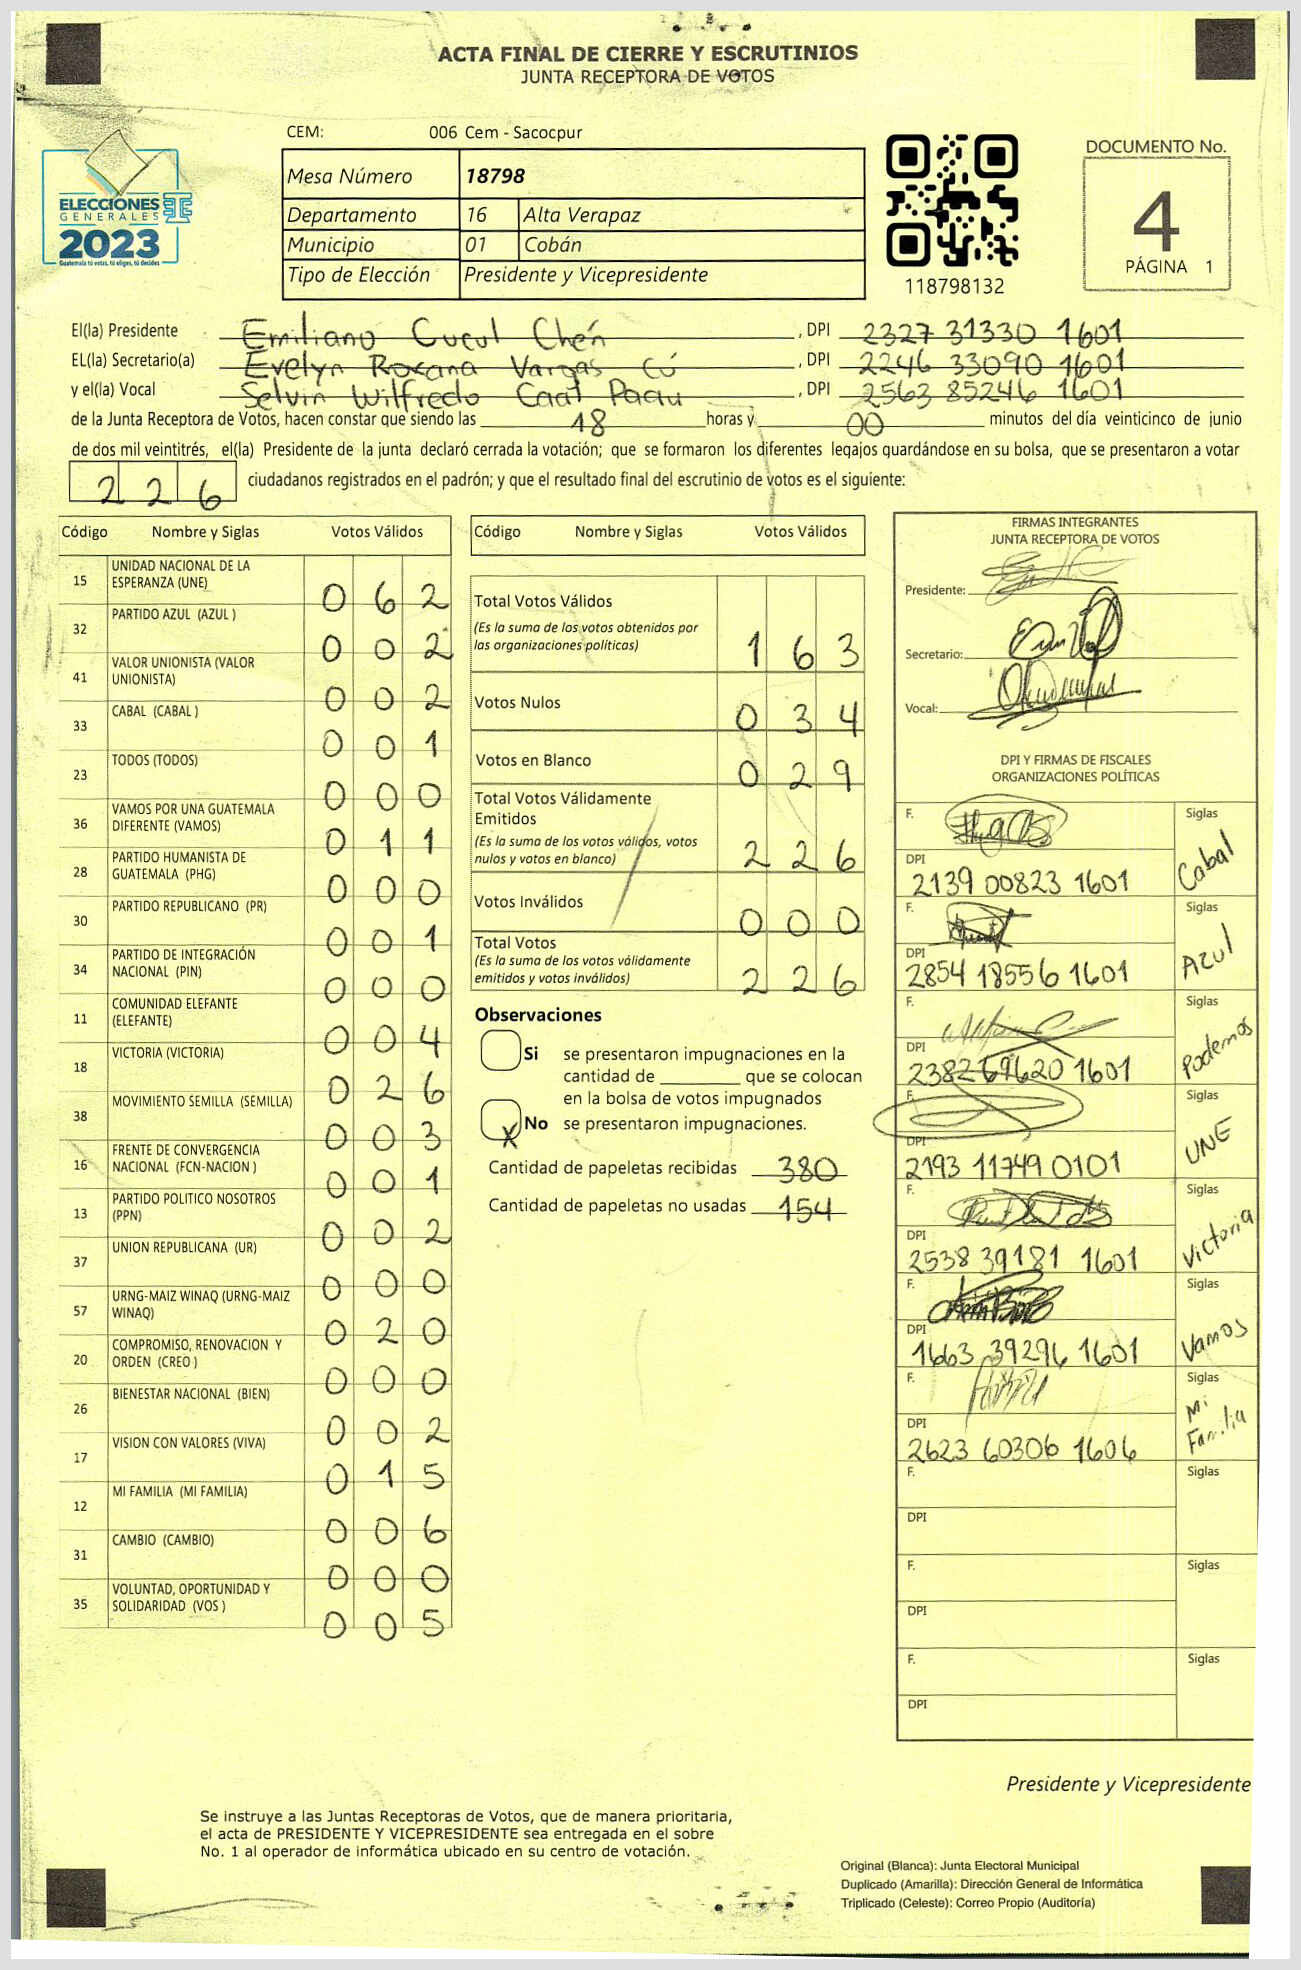 ACTA FINAL DE CIERRE Y ESCRUTINIOS
JUNTA RECEPTORA DE VOTOS
CEM: 006 Cem - Sacocpur
ELECCIONES
GENERALES
2023
Guatemala tú votas, tú eliges, tú decides
Mesa Número 18798
Departamento 16 Alta Verapaz
Municipio 01 Cobán
Tipo de Elección Presidente y Vicepresidente
118798132
DOCUMENTO No.
4
PÁGINA 1
El(la) Presidente Emiliano Cucul Chén , DPI 2327 31330 1601
EL(la) Secretario(a) Evelyn Roxana Vargas Cú , DPI 2246 33090 1601
y el(la) Vocal Selvin Wilfredo Caal Paau , DPI 2563 85246 1601
de la Junta Receptora de Votos, hacen constar que siendo las 18 horas y 00 minutos del día veinticinco de junio
de dos mil veintitrés, el(la) Presidente de la junta declaró cerrada la votación; que se formaron los diferentes legajos guardándose en su bolsa, que se presentaron a votar
226 ciudadanos registrados en el padrón; y que el resultado final del escrutinio de votos es el siguiente:
Código Nombre y Siglas Votos Válidos
15 UNIDAD NACIONAL DE LA ESPERANZA (UNE) 0 6 2
32 PARTIDO AZUL (AZUL ) 0 0 2
41 VALOR UNIONISTA (VALOR UNIONISTA) 0 0 2
33 CABAL (CABAL ) 0 0 1
23 TODOS (TODOS) 0 0 0
36 VAMOS POR UNA GUATEMALA DIFERENTE (VAMOS) 0 1 1
28 PARTIDO HUMANISTA DE GUATEMALA (PHG) 0 0 0
30 PARTIDO REPUBLICANO (PR) 0 0 1
34 PARTIDO DE INTEGRACIÓN NACIONAL (PIN) 0 0 0
11 COMUNIDAD ELEFANTE (ELEFANTE) 0 0 4
18 VICTORIA (VICTORIA) 0 2 6
38 MOVIMIENTO SEMILLA (SEMILLA) 0 0 3
16 FRENTE DE CONVERGENCIA NACIONAL (FCN-NACION ) 0 0 1
13 PARTIDO POLITICO NOSOTROS (PPN) 0 0 2
37 UNION REPUBLICANA (UR) 0 0 0
57 URNG-MAIZ WINAQ (URNG-MAIZ WINAQ) 0 2 0
20 COMPROMISO, RENOVACION Y ORDEN (CREO ) 0 0 0
26 BIENESTAR NACIONAL (BIEN) 0 0 2
17 VISION CON VALORES (VIVA) 0 1 5
12 MI FAMILIA (MI FAMILIA) 0 0 6
31 CAMBIO (CAMBIO) 0 0 0
35 VOLUNTAD, OPORTUNIDAD Y SOLIDARIDAD (VOS ) 0 0 5
Código Nombre y Siglas Votos Válidos
Total Votos Válidos
(Es la suma de los votos obtenidos por
las organizaciones políticas) 1 6 3
Votos Nulos 0 3 4
Votos en Blanco 0 2 9
Total Votos Válidamente
Emitidos
(Es la suma de los votos válidos, votos
nulos y votos en blanco) 2 2 6
Votos Inválidos 0 0 0
Total Votos
(Es la suma de los votos válidamente
emitidos y votos inválidos) 2 2 6
Observaciones
Si se presentaron impugnaciones en la
cantidad de ________ que se colocan
en la bolsa de votos impugnados
X No se presentaron impugnaciones.
Cantidad de papeletas recibidas 380
Cantidad de papeletas no usadas 154
FIRMAS INTEGRANTES
JUNTA RECEPTORA DE VOTOS
Presidente:
Secretario:
Vocal:
DPI Y FIRMAS DE FISCALES
ORGANIZACIONES POLÍTICAS
F. Siglas
DPI 2139 00823 1601 Cabal
F. Siglas
DPI 2854 18556 1601 Azul
F. Siglas
DPI 2382 69620 1601 Podemos
F. Siglas
DPI 2193 11749 0101 UNE
F. Siglas
DPI 2538 39181 1601 Victoria
F. Siglas
DPI 1663 39296 1601 Vamos
F. Siglas
DPI 2623 60306 1606 Mi Familia
F. Siglas
DPI
F. Siglas
DPI
F. Siglas
DPI
Presidente y Vicepresidente
Se instruye a las Juntas Receptoras de Votos, que de manera prioritaria,
el acta de PRESIDENTE Y VICEPRESIDENTE sea entregada en el sobre
No. 1 al operador de informática ubicado en su centro de votación.
Original (Blanca): Junta Electoral Municipal
Duplicado (Amarilla): Dirección General de Informática
Triplicado (Celeste): Correo Propio (Auditoría)